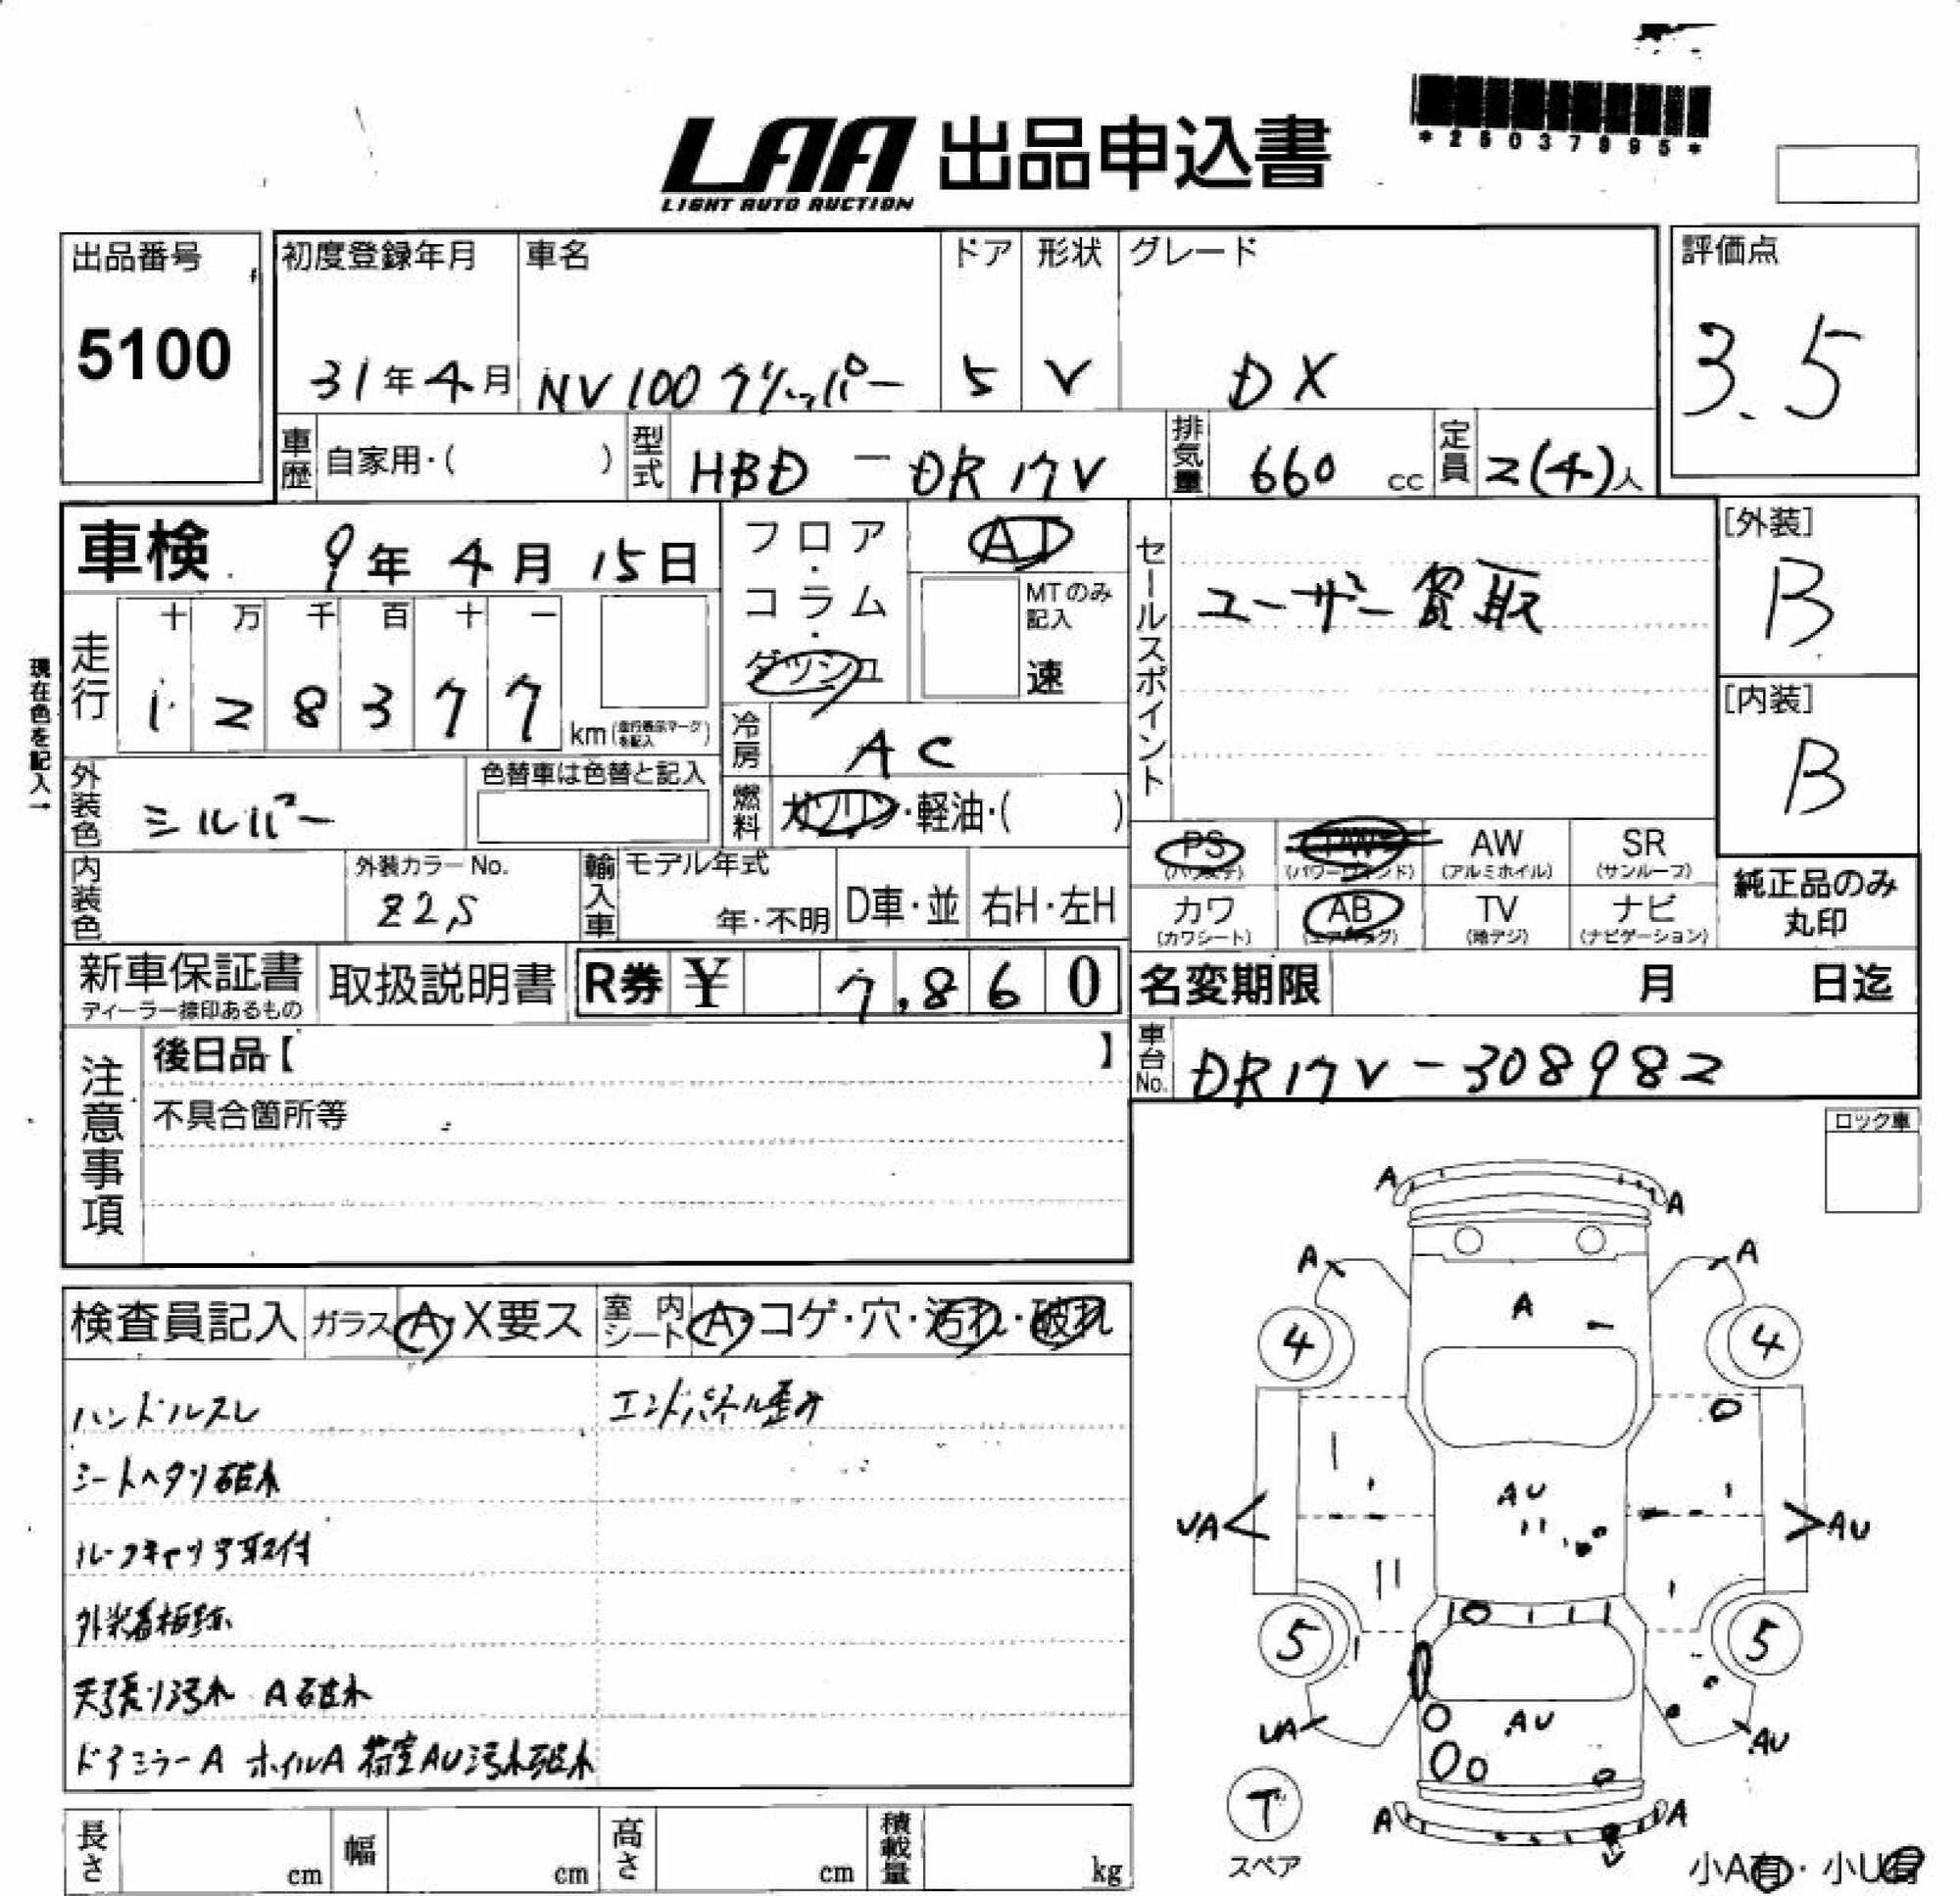 *25037995*
LAA 出品申込書
LIGHT AUTO AUCTION
出品番号 初度登録年月 車名 ドア 形状 グレード 評価点
5100 31年4月 NV100クリッパー 5 V DX 3.5
車歴 自家用・( ) 型式 HBD-DR17V 排気量 660 cc 定員 2(4)人
車検 9年4月15日 フロア・コラム・ダッシュ AT セールスポイント [外装]
MTのみ記入 速 ユーザー買取 B
現在色を記入→
走行 十 万 千 百 十 一
1 2 8 3 7 7 km(走行表示マークを記入) [内装]
冷房 AC B
外装色 シルバー 色替車は色替と記入 燃料 ガソリン・軽油・( )
PS PW AW SR
(パワステ) (パワーウインド) (アルミホイル) (サンルーフ) 純正品のみ
内装色 外装カラーNo. 輸入車 モデル年式 カワ AB TV ナビ 丸印
Z2S 年・不明 D車・並 右H・左H (カワシート) (エアバッグ) (地デジ) (ナビゲーション)
新車保証書 取扱説明書 R券 ¥ 7,860 名変期限 月 日迄
ディーラー捺印あるもの
注意事項 後日品【 】 車台No. DR17V-308982
不具合箇所等 ロック車
A A
A A
検査員記入 ガラス A・X要ス 室内シート A・コゲ・穴・汚れ・破れ A
4 4
ハンドルスレ エンドパネル歪み
シートヘタリ破れ AU
ルーフキャリア取付 UA AU
外装看板跡
天張り汚れ A破れ 5 5
ドアミラーA ホイルA 荷室AU汚れ破れ UA AU AU
T A A
スペア
長さ cm 幅 cm 高さ cm 積載量 kg 小A有・小U有